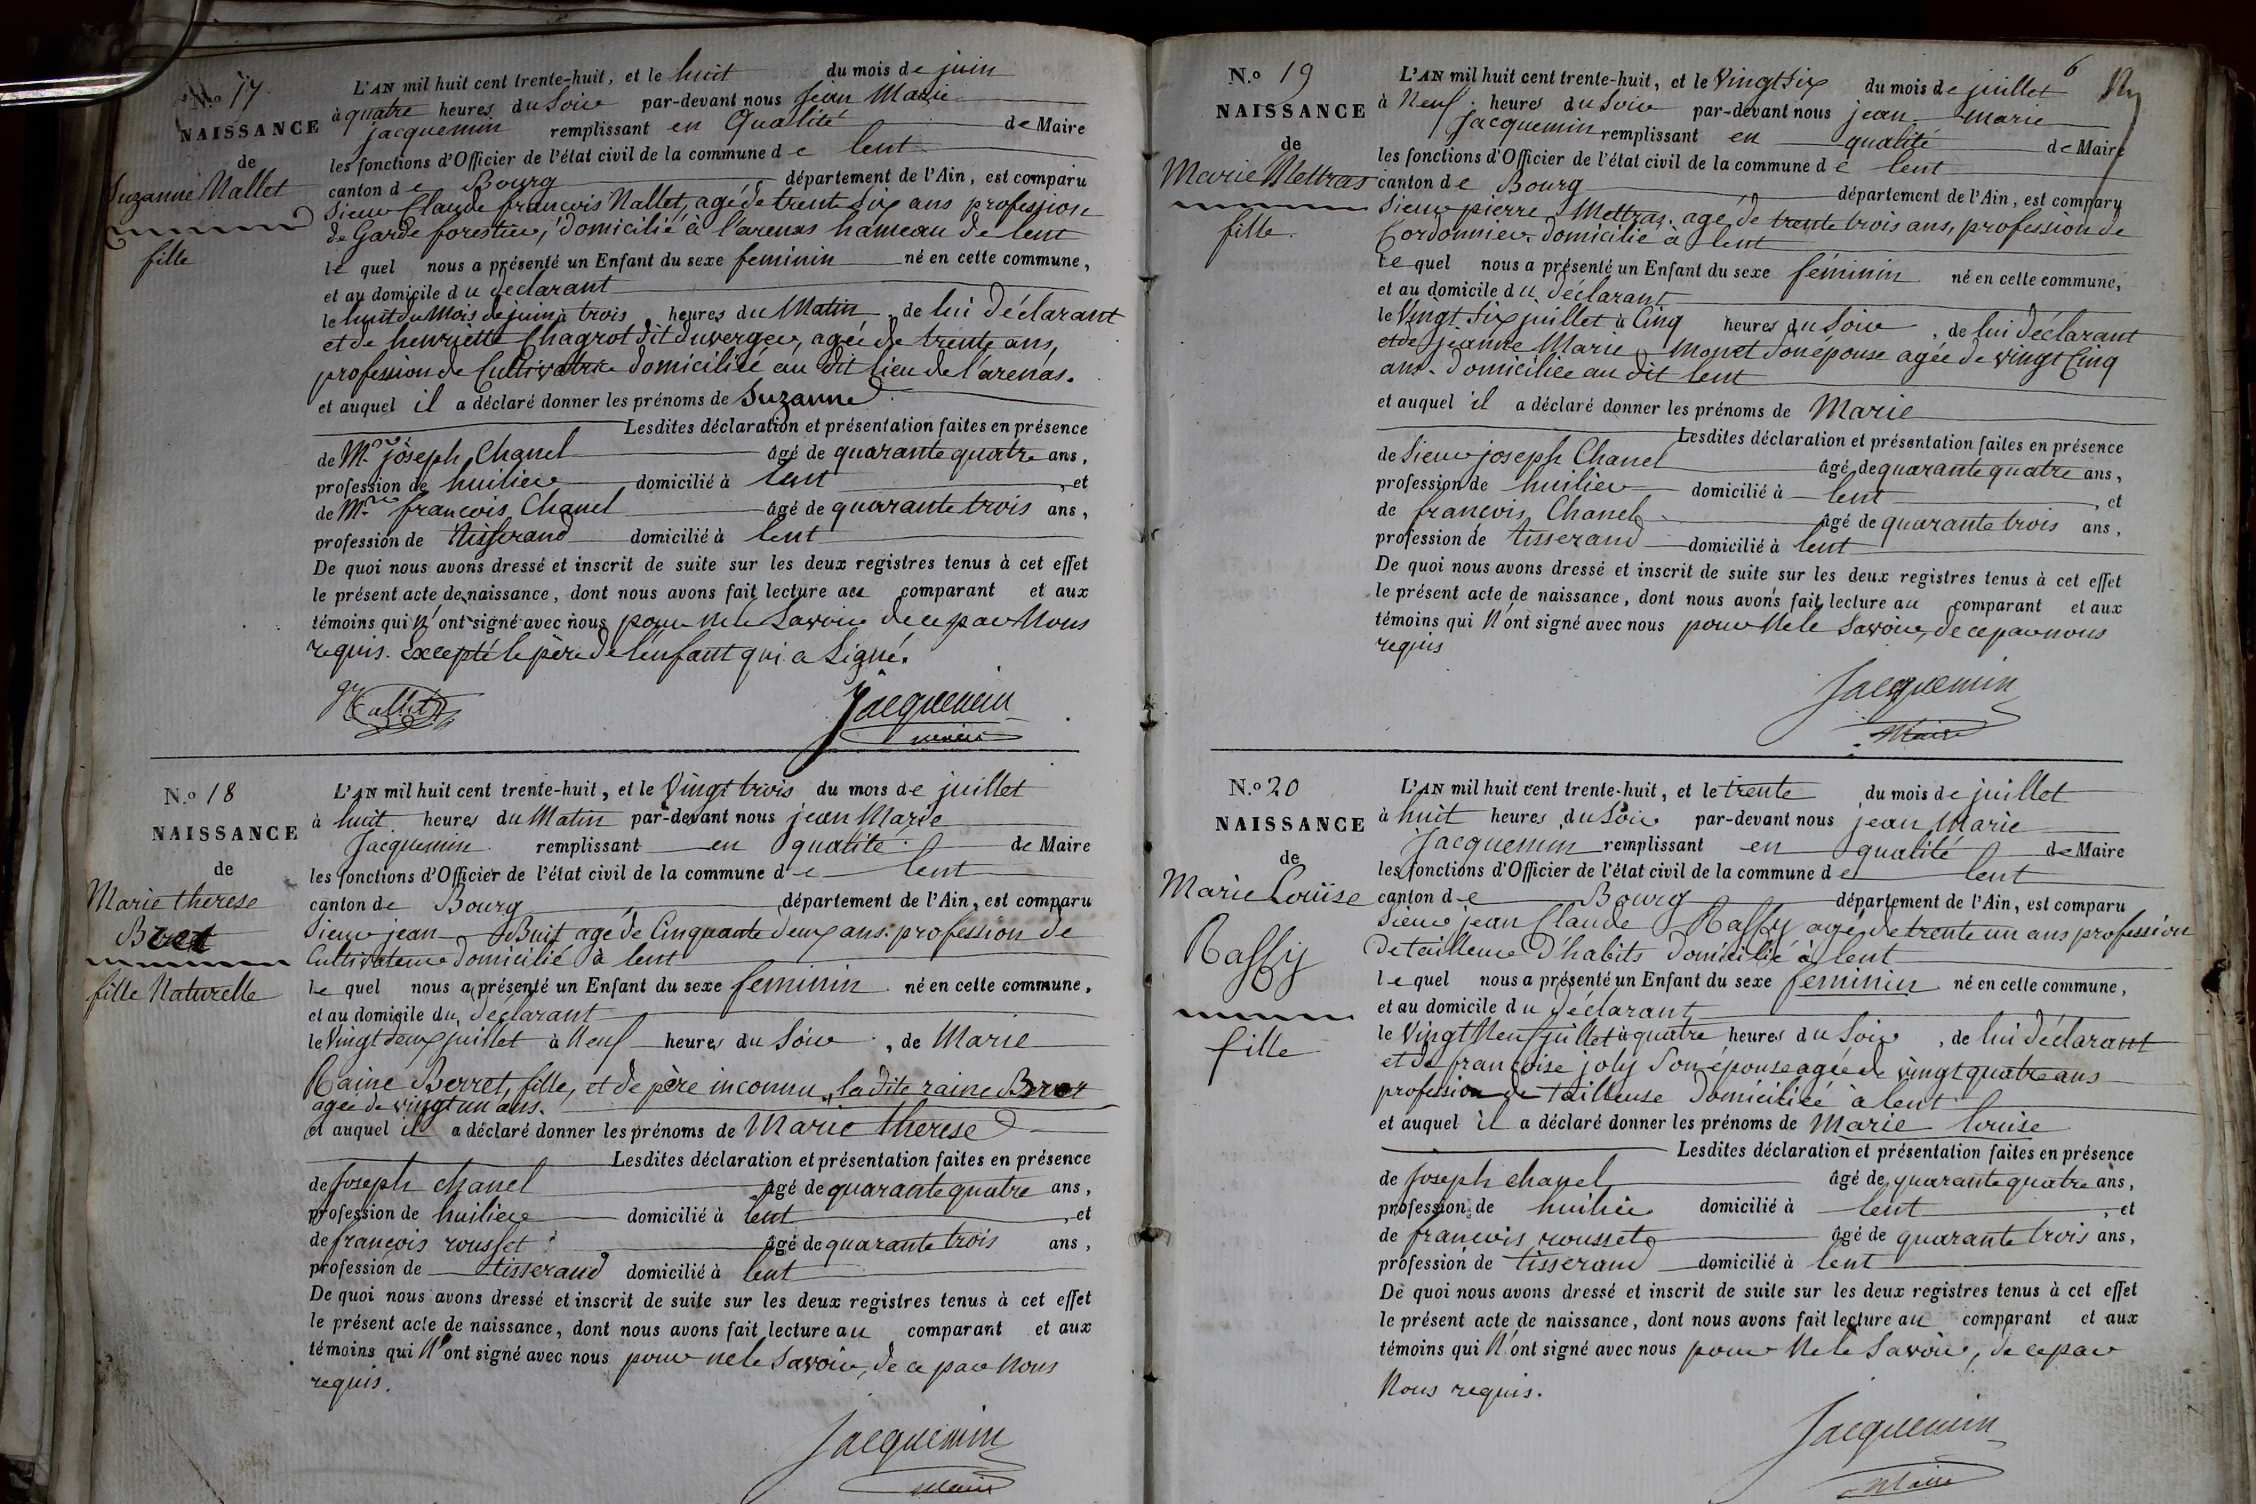 N.o 17
NAISSANCE
de
Suzanne Nallet
fille
L'AN mil huit cent trente-huit, et le huit du mois de juin
à quatre heures du Soir par-devant nous jean Marie
jacquemin remplissant en Qualité de Maire
les fonctions d'Officier de l'état civil de la commune de lent
canton de Bourg département de l'Ain, est comparu
Sieur Claude francois Nallet, agé de trente Six ans profession
de Garde forestier, domicilié à l'arenas hameau de lent
le quel nous a présenté un Enfant du sexe feminin né en cette commune,
et au domicile du déclarant
le huit du Mois de juin à trois heures du Matin, de lui déclarant
et de henriette Chagrot dit duverger, agée de trente ans,
profession de Cultivatrice domiciliée au dit lieu de l'arenas.
et auquel il a déclaré donner les prénoms de Suzanne
Lesdites déclaration et présentation faites en présence
de Mr joseph Chanel âgé de quarante quatre ans,
profession de huilier domicilié à lent, et
de Mr francois Chanel âgé de quarante trois ans,
profession de tisserand domicilié à lent
De quoi nous avons dressé et inscrit de suite sur les deux registres tenus à cet effet
le présent acte de naissance, dont nous avons fait lecture au comparant et aux
témoins qui n'ont signé avec nous pour ne le Savoir de ce par Nous
requis. Excepté le père de l'enfant qui a Signé.
Nallet Jacquemin
maire
N.o 18
NAISSANCE
de
Marie therese
Beret
fille Naturelle
L'AN mil huit cent trente-huit, et le Vingt trois du mois de juillet
à huit heures du Matin par-devant nous jean Marie
Jacquemin remplissant en qualité de Maire
les fonctions d'Officier de l'état civil de la commune de lent
canton de Bourg département de l'Ain, est comparu
Sieur jean Buit agé de Cinquante deux ans. profession de
Cultivateur domicilié à lent
le quel nous a présenté un Enfant du sexe feminin né en cette commune,
et au domicile du déclarant
le Vingt deux juillet à Neuf heures du Soir, de Marie
Raine Berret, fille, et de père inconnu, la dite raine Beret
agée de vingt un ans.
et auquel il a déclaré donner les prénoms de Marie therese
Lesdites déclaration et présentation faites en présence
de Joseph chanel âgé de quarante quatre ans,
profession de huilier domicilié à lent, et
de françois rousset âgé de quarante trois ans,
profession de tisserand domicilié à lent
De quoi nous avons dressé et inscrit de suite sur les deux registres tenus à cet effet
le présent acte de naissance, dont nous avons fait lecture au comparant et aux
témoins qui N'ont signé avec nous pour ne le Savoir, de ce par Nous
requis.
Jacquemin
maire
6
N.o 19
NAISSANCE
de
Marie Mettras
fille.
L'AN mil huit cent trente-huit, et le Vingt Six du mois de juillet
à Neuf heures du Soir par-devant nous jean marie
Jacquemin remplissant en qualité de Maire
les fonctions d'Officier de l'état civil de la commune de lent
canton de Bourg département de l'Ain, est comparu
Sieur pierre Mettras. agé de trente trois ans, profession de
Cordonnier. domicilié à lent
le quel nous a présenté un Enfant du sexe féminin né en cette commune,
et au domicile du déclarant
le Vingt Six juillet à Cinq heures du Soir, de lui déclarant
et de jeanne Marie Monet Son épouse agée de vingt Cinq
ans. domiciliée au dit lent
et auquel il a déclaré donner les prénoms de Marie
Lesdites déclaration et présentation faites en présence
de Sieur joseph Chanel âgé de quarante quatre ans,
profession de huilier domicilié à lent, et
de françois Chanel âgé de quarante trois ans,
profession de tisserand domicilié à lent
De quoi nous avons dressé et inscrit de suite sur les deux registres tenus à cet effet
le présent acte de naissance, dont nous avons fait lecture au comparant et aux
témoins qui N'ont signé avec nous pour Ne le Savoir, de ce par nous
requis
Jacquemin
Maire
N.o 20
NAISSANCE
de
Marie Louise
Raffy
fille
L'AN mil huit cent trente-huit, et le trente du mois de juillet
à huit heures du Soir par-devant nous jean Marie
Jacquemin remplissant en qualité de Maire
les fonctions d'Officier de l'état civil de la commune de lent
canton de Bourg département de l'Ain, est comparu
Sieur jean Claude Raffy agé de trente un ans profession
de tailleur d'habits domicilié à lent
le quel nous a présenté un Enfant du sexe feminin né en cette commune,
et au domicile du déclarant
le Vingt Neuf juillet à quatre heures du Soir, de lui déclarant
et de françoise joly Son épouse agée de vingt quatre ans
profession de tailleuse domiciliée à lent
et auquel il a déclaré donner les prénoms de Marie louise
Lesdites déclaration et présentation faites en présence
de Joseph chanel âgé de quarante quatre ans,
profession de huilier domicilié à lent, et
de francois rousset âgé de quarante trois ans,
profession de tisserand domicilié à lent
De quoi nous avons dressé et inscrit de suite sur les deux registres tenus à cet effet
le présent acte de naissance, dont nous avons fait lecture au comparant et aux
témoins qui N'ont signé avec nous pour Ne le Savoir, de ce par
Nous requis.
Jacquemin
Maire